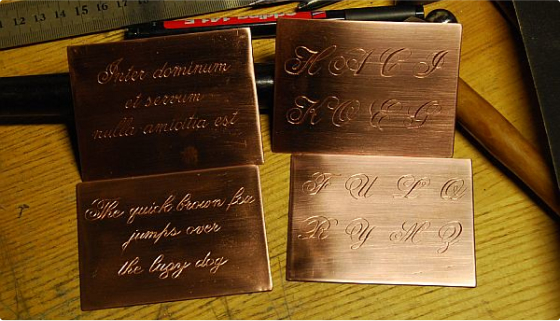 12 13 14 15 16 17 18 19 20
edding 141 F
Inter dominum
et servum
nulla amicitia est
H A C I
K O E G
The quick brown fox
jumps over
the lazy dog
F U L Q
R Y M Z